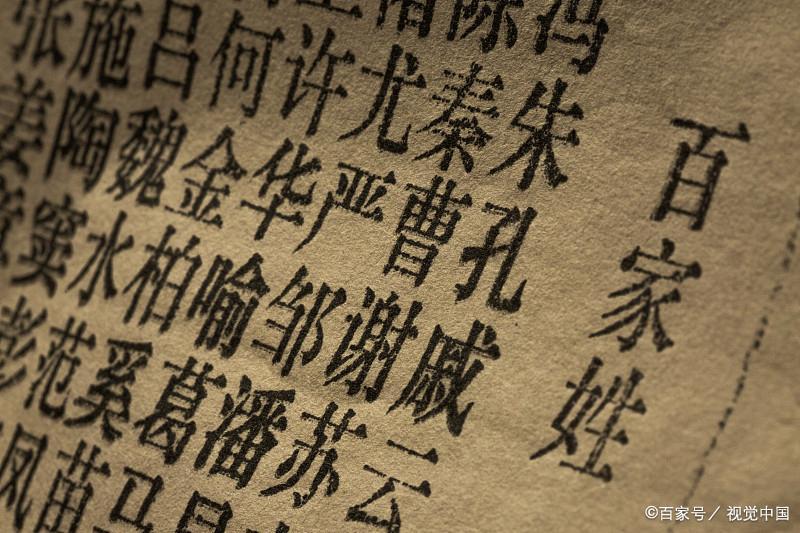 百家姓
冯陈褚卫
朱秦尤许何吕施张
孔曹严华金魏陶姜
戚谢邹喻柏水窦章
云苏潘葛奚范彭
昌马苗凤
©百家号／视觉中国